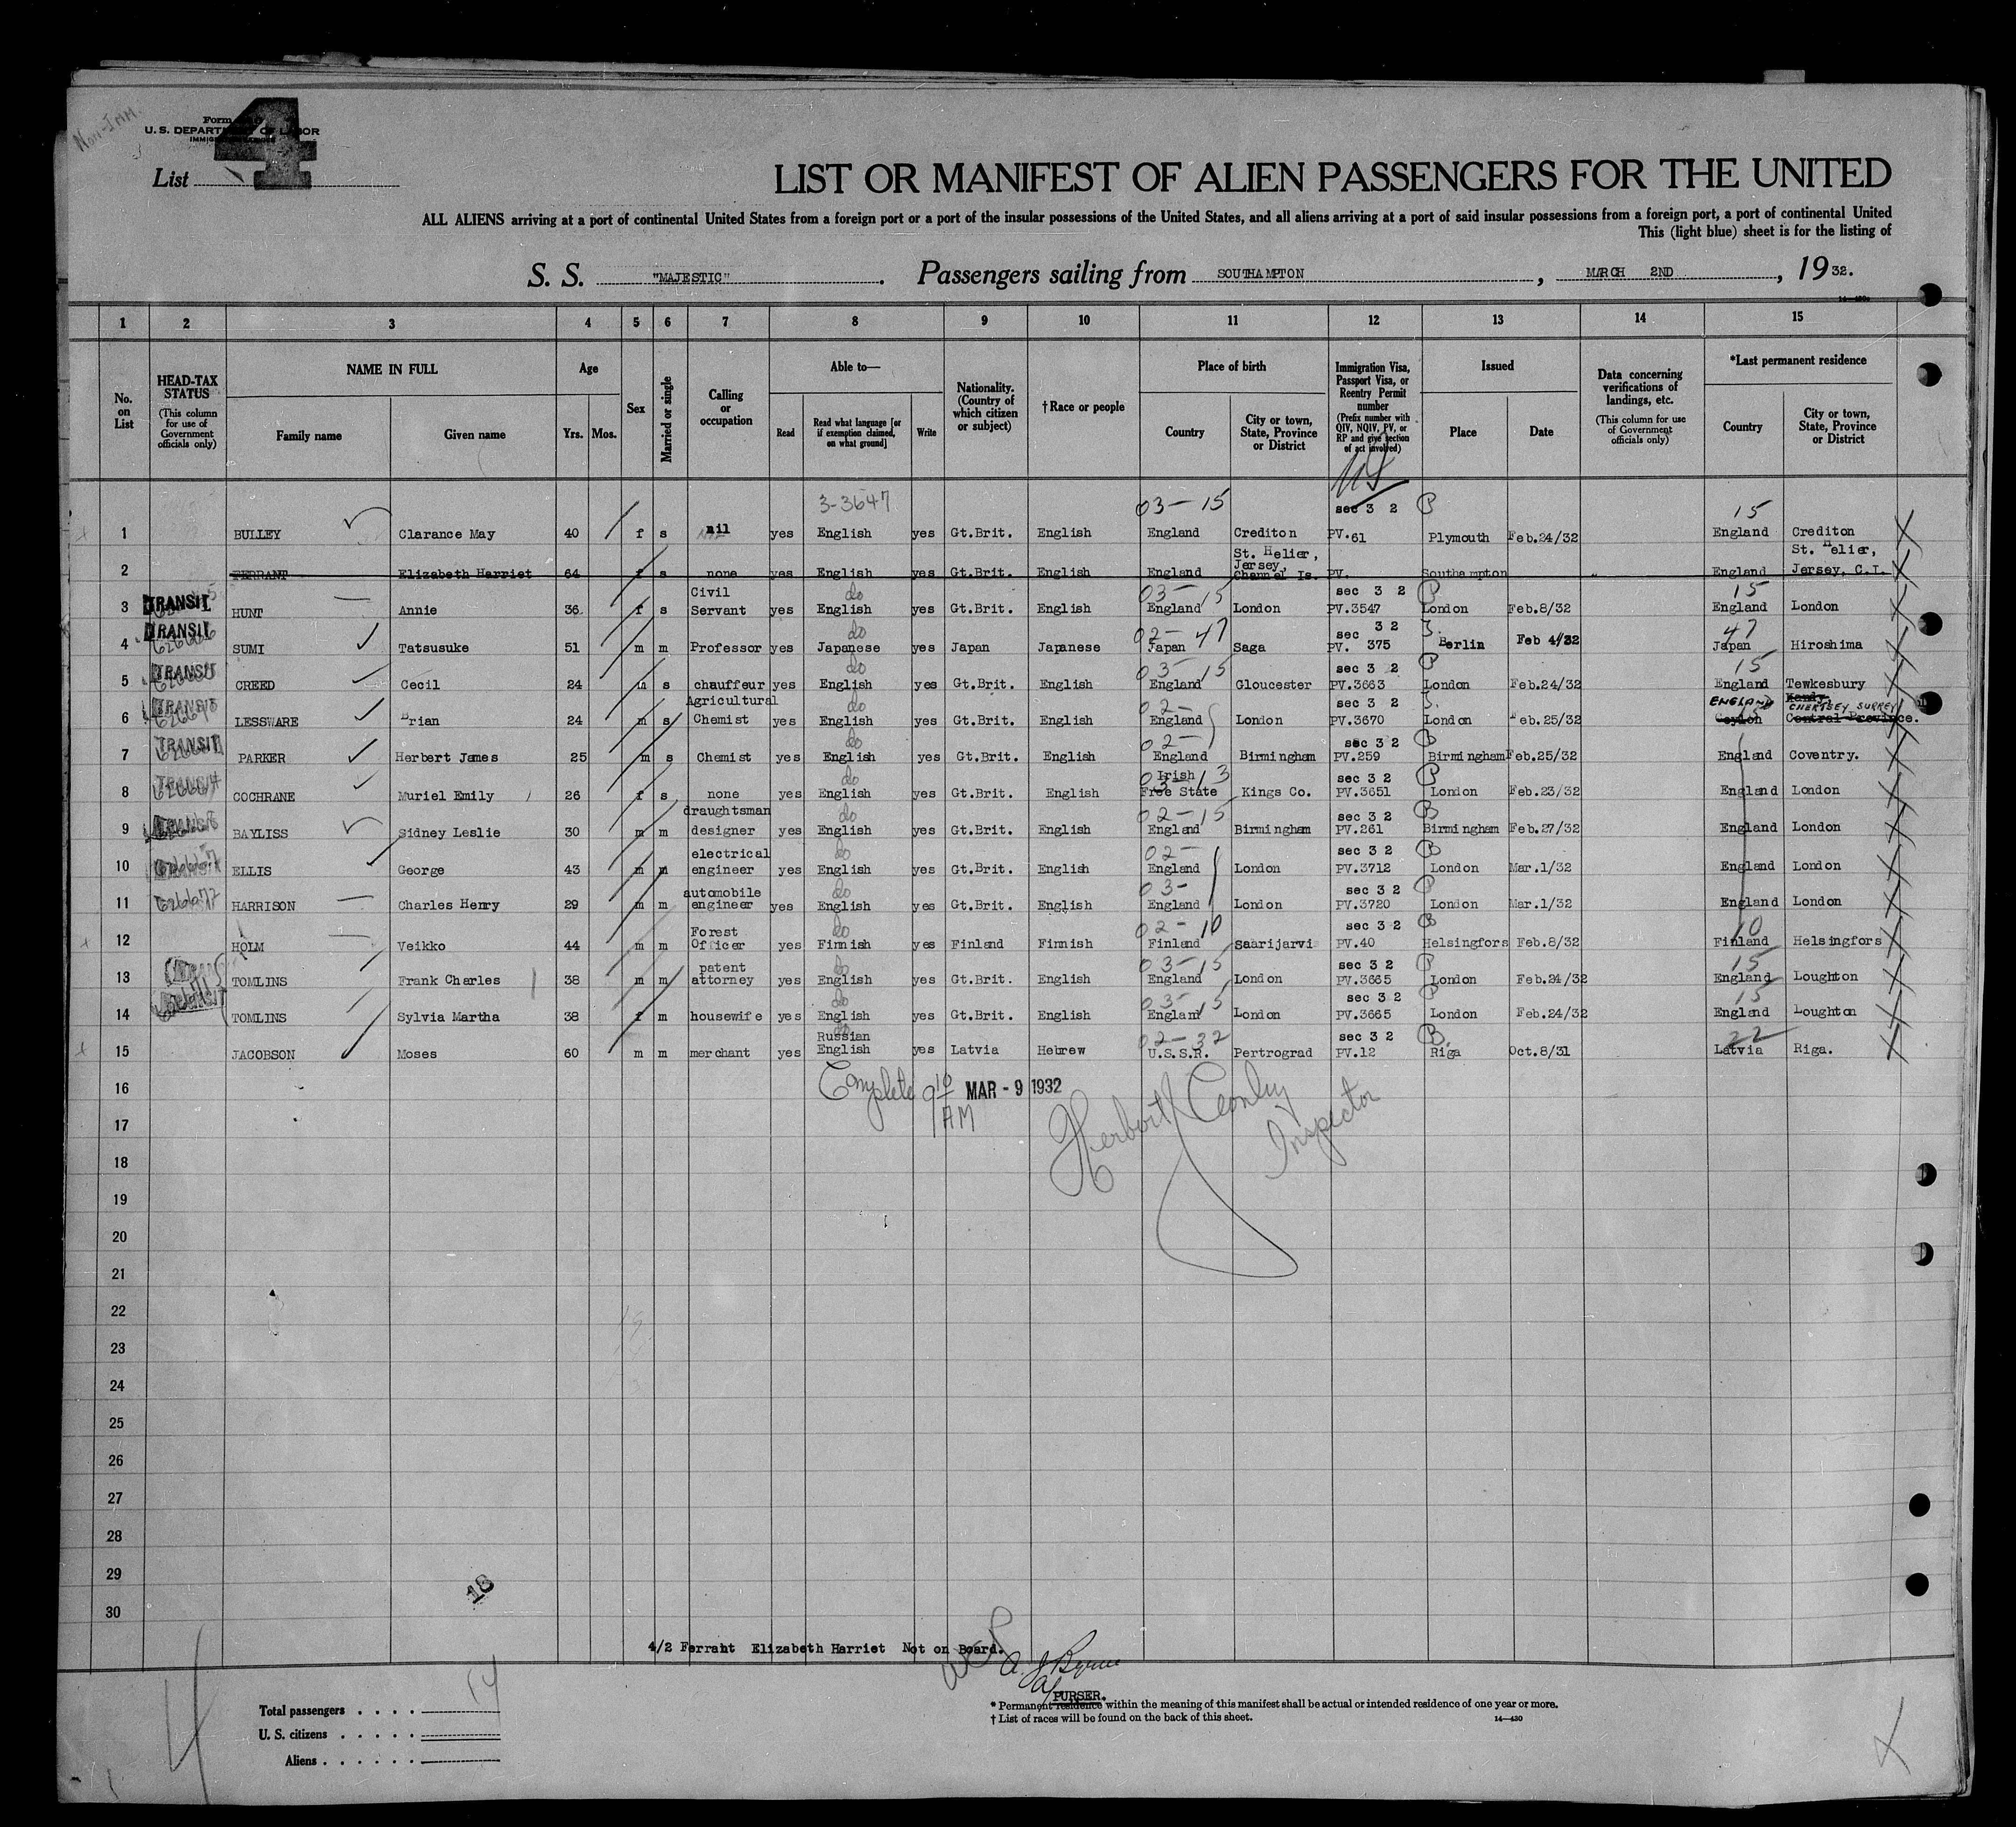 Non-Imm.
Form
U. S. DEPARTMENT OF LABOR
4
List
LIST OR MANIFEST OF ALIEN PASSENGERS FOR THE UNITED
ALL ALIENS arriving at a port of continental United States from a foreign port or a port of the insular possessions of the United States, and all aliens arriving at a port of said insular possessions from a foreign port, a port of continental United
This (light blue) sheet is for the listing of
S. S. "MAJESTIC". Passengers sailing from SOUTHAMPTON, MARCH 2ND, 1932.
1 2 3 4 5 6 7 8 9 10 11 12 13 14 15
No. on List
HEAD-TAX STATUS (This column for use of Government officials only)
NAME IN FULL Family name Given name
Age Yrs. Mos.
Sex
Married or single
Calling or occupation
Able to— Read Read what language [or if exemption claimed, on what ground] Write
Nationality. (Country of which citizen or subject)
†Race or people
Place of birth Country City or town, State, Province or District
Immigration Visa, Passport Visa, or Reentry Permit number (Prefix number with QIV, NQIV, PV, or RP and give section of act involved)
Issued Place Date
Data concerning verifications of landings, etc. (This column for use of Government officials only)
*Last permanent residence Country City or town, State, Province or District
3-3647 03-15 sec 3 2 P 15
1 BULLEY Clarance May 40 f s nil yes English yes Gt.Brit. English England Crediton PV.61 Plymouth Feb.24/32 England Crediton
St. Helier, Jersey, St. Helier,
2 FERRANT Elizabeth Harriet 64 f s none yes English yes Gt.Brit. English England Channel Is. PV. Southampton England Jersey, C.I.
TRANSIT Civil do 03-15 sec 3 2 P 15
3 HUNT Annie 36 f s Servant yes English yes Gt.Brit. English England London PV.3547 London Feb.8/32 England London
TRANSIT do 02-47 sec 3 2 47
4 SUMI Tatsusuke 51 m m Professor yes Japanese yes Japan Japanese Japan Saga PV. 375 Berlin Feb 4/32 Japan Hiroshima
TRANSIT do 03-15 sec 3 2 P 15
5 CREED Cecil 24 m s chauffeur yes English yes Gt.Brit. English England Gloucester PV.3663 London Feb.24/32 England Tewkesbury
TRANSIT Agricultural do 02- sec 3 2 ENGLAND Kandy, CHERTSEY SURREY
6 LESSWARE Brian 24 m s Chemist yes English yes Gt.Brit. English England London PV.3670 London Feb.25/32 Ceylon Central Province.
TRANSIT do 02- sec 3 2
7 PARKER Herbert James 25 m s Chemist yes English yes Gt.Brit. English England Birmingham PV.259 Birmingham Feb.25/32 England Coventry.
TRANSIT do Irish sec 3 2 P
8 COCHRANE Muriel Emily 26 f s none yes English yes Gt.Brit. English Free State Kings Co. PV.3651 London Feb.23/32 England London
TRANSIT draughtsman do 02-15 sec 3 2 B
9 BAYLISS Sidney Leslie 30 m m designer yes English yes Gt.Brit. English England Birmingham PV.261 Birmingham Feb.27/32 England London
electrical do 02- sec 3 2 B
10 ELLIS George 43 m m engineer yes English yes Gt.Brit. English England London PV.3712 London Mar.1/32 England London
626672 automobile do 03- sec 3 2 P
11 HARRISON Charles Henry 29 m m engineer yes English yes Gt.Brit. English England London PV.3720 London Mar.1/32 England London
Forest do 02-10 sec 3 2 B 10
12 HOLM Veikko 44 m m Officer yes Finnish yes Finland Finnish Finland Saarijarvi PV.40 Helsingfors Feb.8/32 Finland Helsingfors
patent do 03-15 sec 3 2 P 15
13 TOMLINS Frank Charles 38 m m attorney yes English yes Gt.Brit. English England London PV.3665 London Feb.24/32 England Loughton
do 03-15 sec 3 2 P 15
14 TOMLINS Sylvia Martha 38 f m housewife yes English yes Gt.Brit. English England London PV.3665 London Feb.24/32 England Loughton
Russian 02-32 sec 3 2 B 22
15 JACOBSON Moses 60 m m merchant yes English yes Latvia Hebrew U.S.S.R. Pertrograd PV.12 Riga Oct.8/31 Latvia Riga.
16 Complete 9 10 AM MAR - 9 1932
17 Herbert Inspector
18
19
20
21
22
23
24
25
26
27
28
29
18
30
4/2 Ferraht Elizabeth Harriet Not on Board.
A. J. Byrne
PURSER.
Total passengers . . . . 14
U. S. citizens . . . . .
Aliens . . . . . .
* Permanent residence within the meaning of this manifest shall be actual or intended residence of one year or more.
† List of races will be found on the back of this sheet. 14—430
4